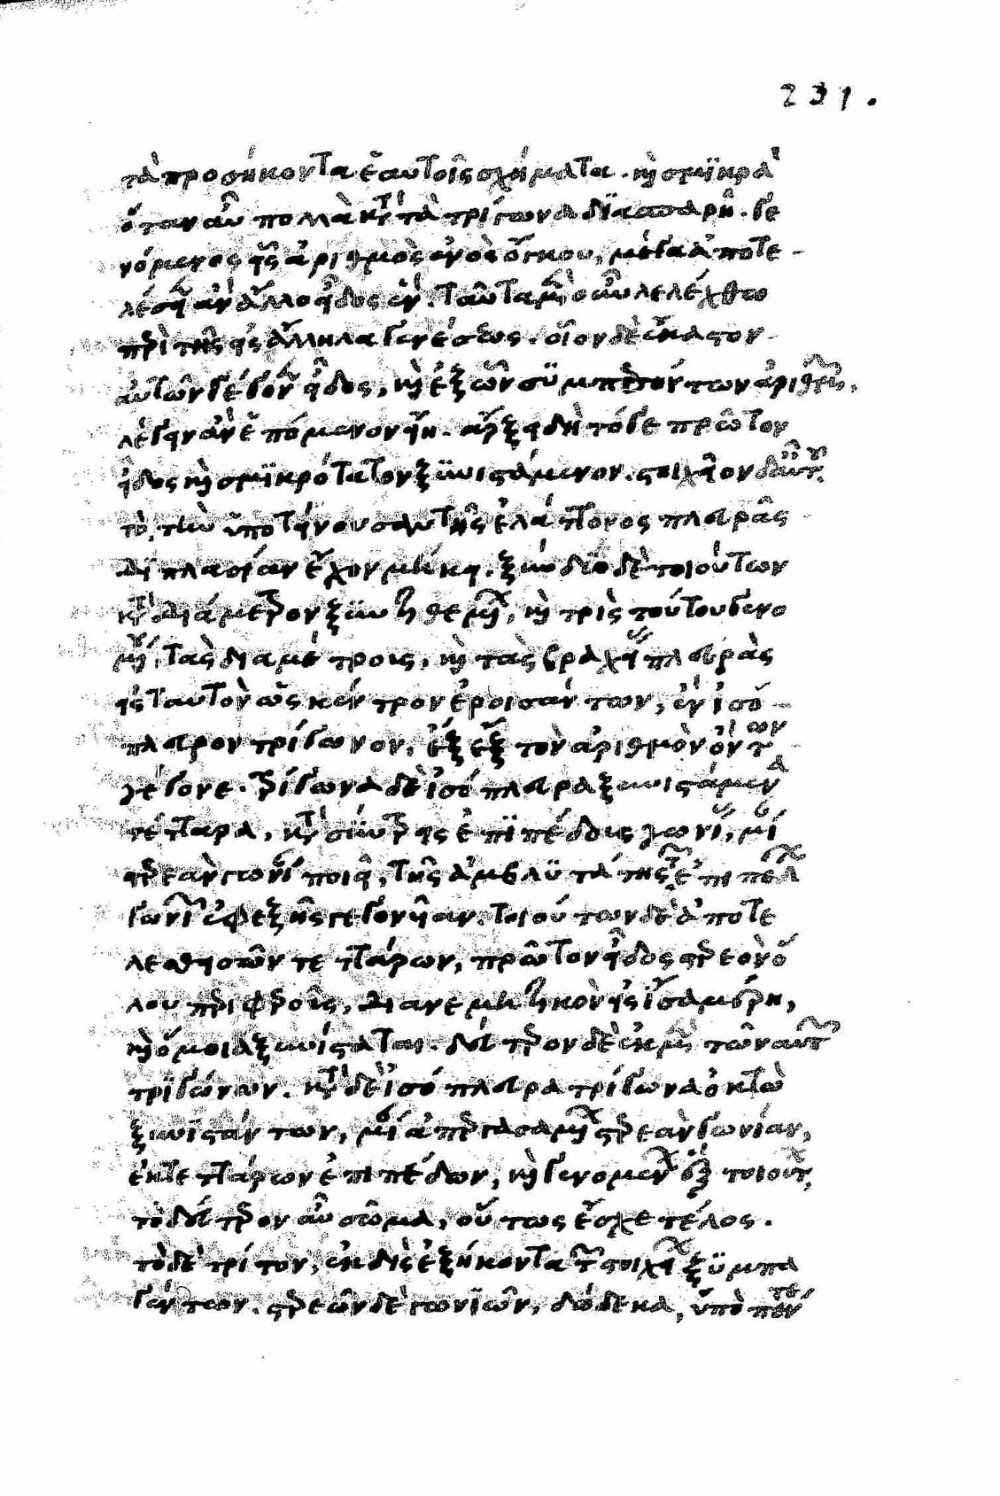 231.
τὰ προσήκοντα ἑαυτοῖς σχήματα. καὶ σμϊκρὰ
ὅταν αὖ πολλὰ κατὰ τὰ τρίγωνα δϊασπαρῆ. γε
νόμενος εἷς ἀριθμὸς ἑνὸς ὄγκου, μέγα ἀποτε
λέσει ἂν ἄλλο εἶδος ἕν. ταῦτα μὲν οὖν λελέχθω
περὶ τῆς εἰς ἄλληλα γενέσεως. οἷον δὲ ἕκαστον
αὐτῶν γέγονεν εἶδος, καὶ ἐξ ὧν σϋμπεσόντων ἀριθμῶν,
λέγειν ἂν ἑπόμενον εἴη. ἄρξει δὴ τό γε πρῶτον
εἶδος καὶ σμϊκρότατον ξϋνιστάμενον. στοιχεῖον δ' αὐτοῦ
τὸ, τὴν ὑποτείνουσαν τῆς ἐλάττονος πλευρᾶς
δϊπλασίαν ἔχον μήκει. ξύνδϋο δὲ τοιούτων
κατὰ διάμετρον ξϋντιθεμένων, καὶ τρὶς τούτου γενο
μένου, τὰς διαμέτρους, καὶ τὰς βραχείας πλευρὰς
εἰς ταυτὸν ὡς κέντρον ἐρεισάντων, ἓν ἰσό
πλευρον τρίγωνον, ἐξ ἓξ τὸν ἀριθμὸν ὄντων
γέγονε. τρίγωνα δὲ ἰσόπλευρα ξυνιστάμενα
τέτταρα, κατὰ σϋντρεῖς ἐπϊπέδους γωνίας, μίαν
στερεὰν γωνίαν ποιεῖ, τῆς ἀμβλϋτάτης τῶν ἐπιπέδων
γωνιῶν ἐφεξῆς γεγονυῖαν. τοιούτων δὲ ἀποτε
λεσθεισῶν τεττάρων, πρῶτον εἶδος στερεὸν ὅ
λου περιφεροῦς, διανεμητικὸν εἰς ἴσα μέρη,
καὶ ὅμοια ξυνίσταται. δεύτερον δὲ ἐκ μὲν τῶν αὐτῶν
τρϊγώνων. κατὰ δὲ ἰσόπλευρα τρίγωνα ὀκτὼ
ξυνιστάντων, μίαν ἀπεργασαμένων στερεὰν γωνίαν,
ἐκ τεττάρων ἐπιπέδων, καὶ γενομένων ἓξ τοιούτων,
τὸ δεύτερον αὖ σῶμα, οὕτως ἔσχε τέλος.
τὸ δὲ τρίτον, ἐκ δὶς ἑξήκοντα τῶν στοιχείων ξϋμπα
γέντων. στερεῶν δὲ γωνϊῶν, δώδεκα, ὑπὸ πέντε